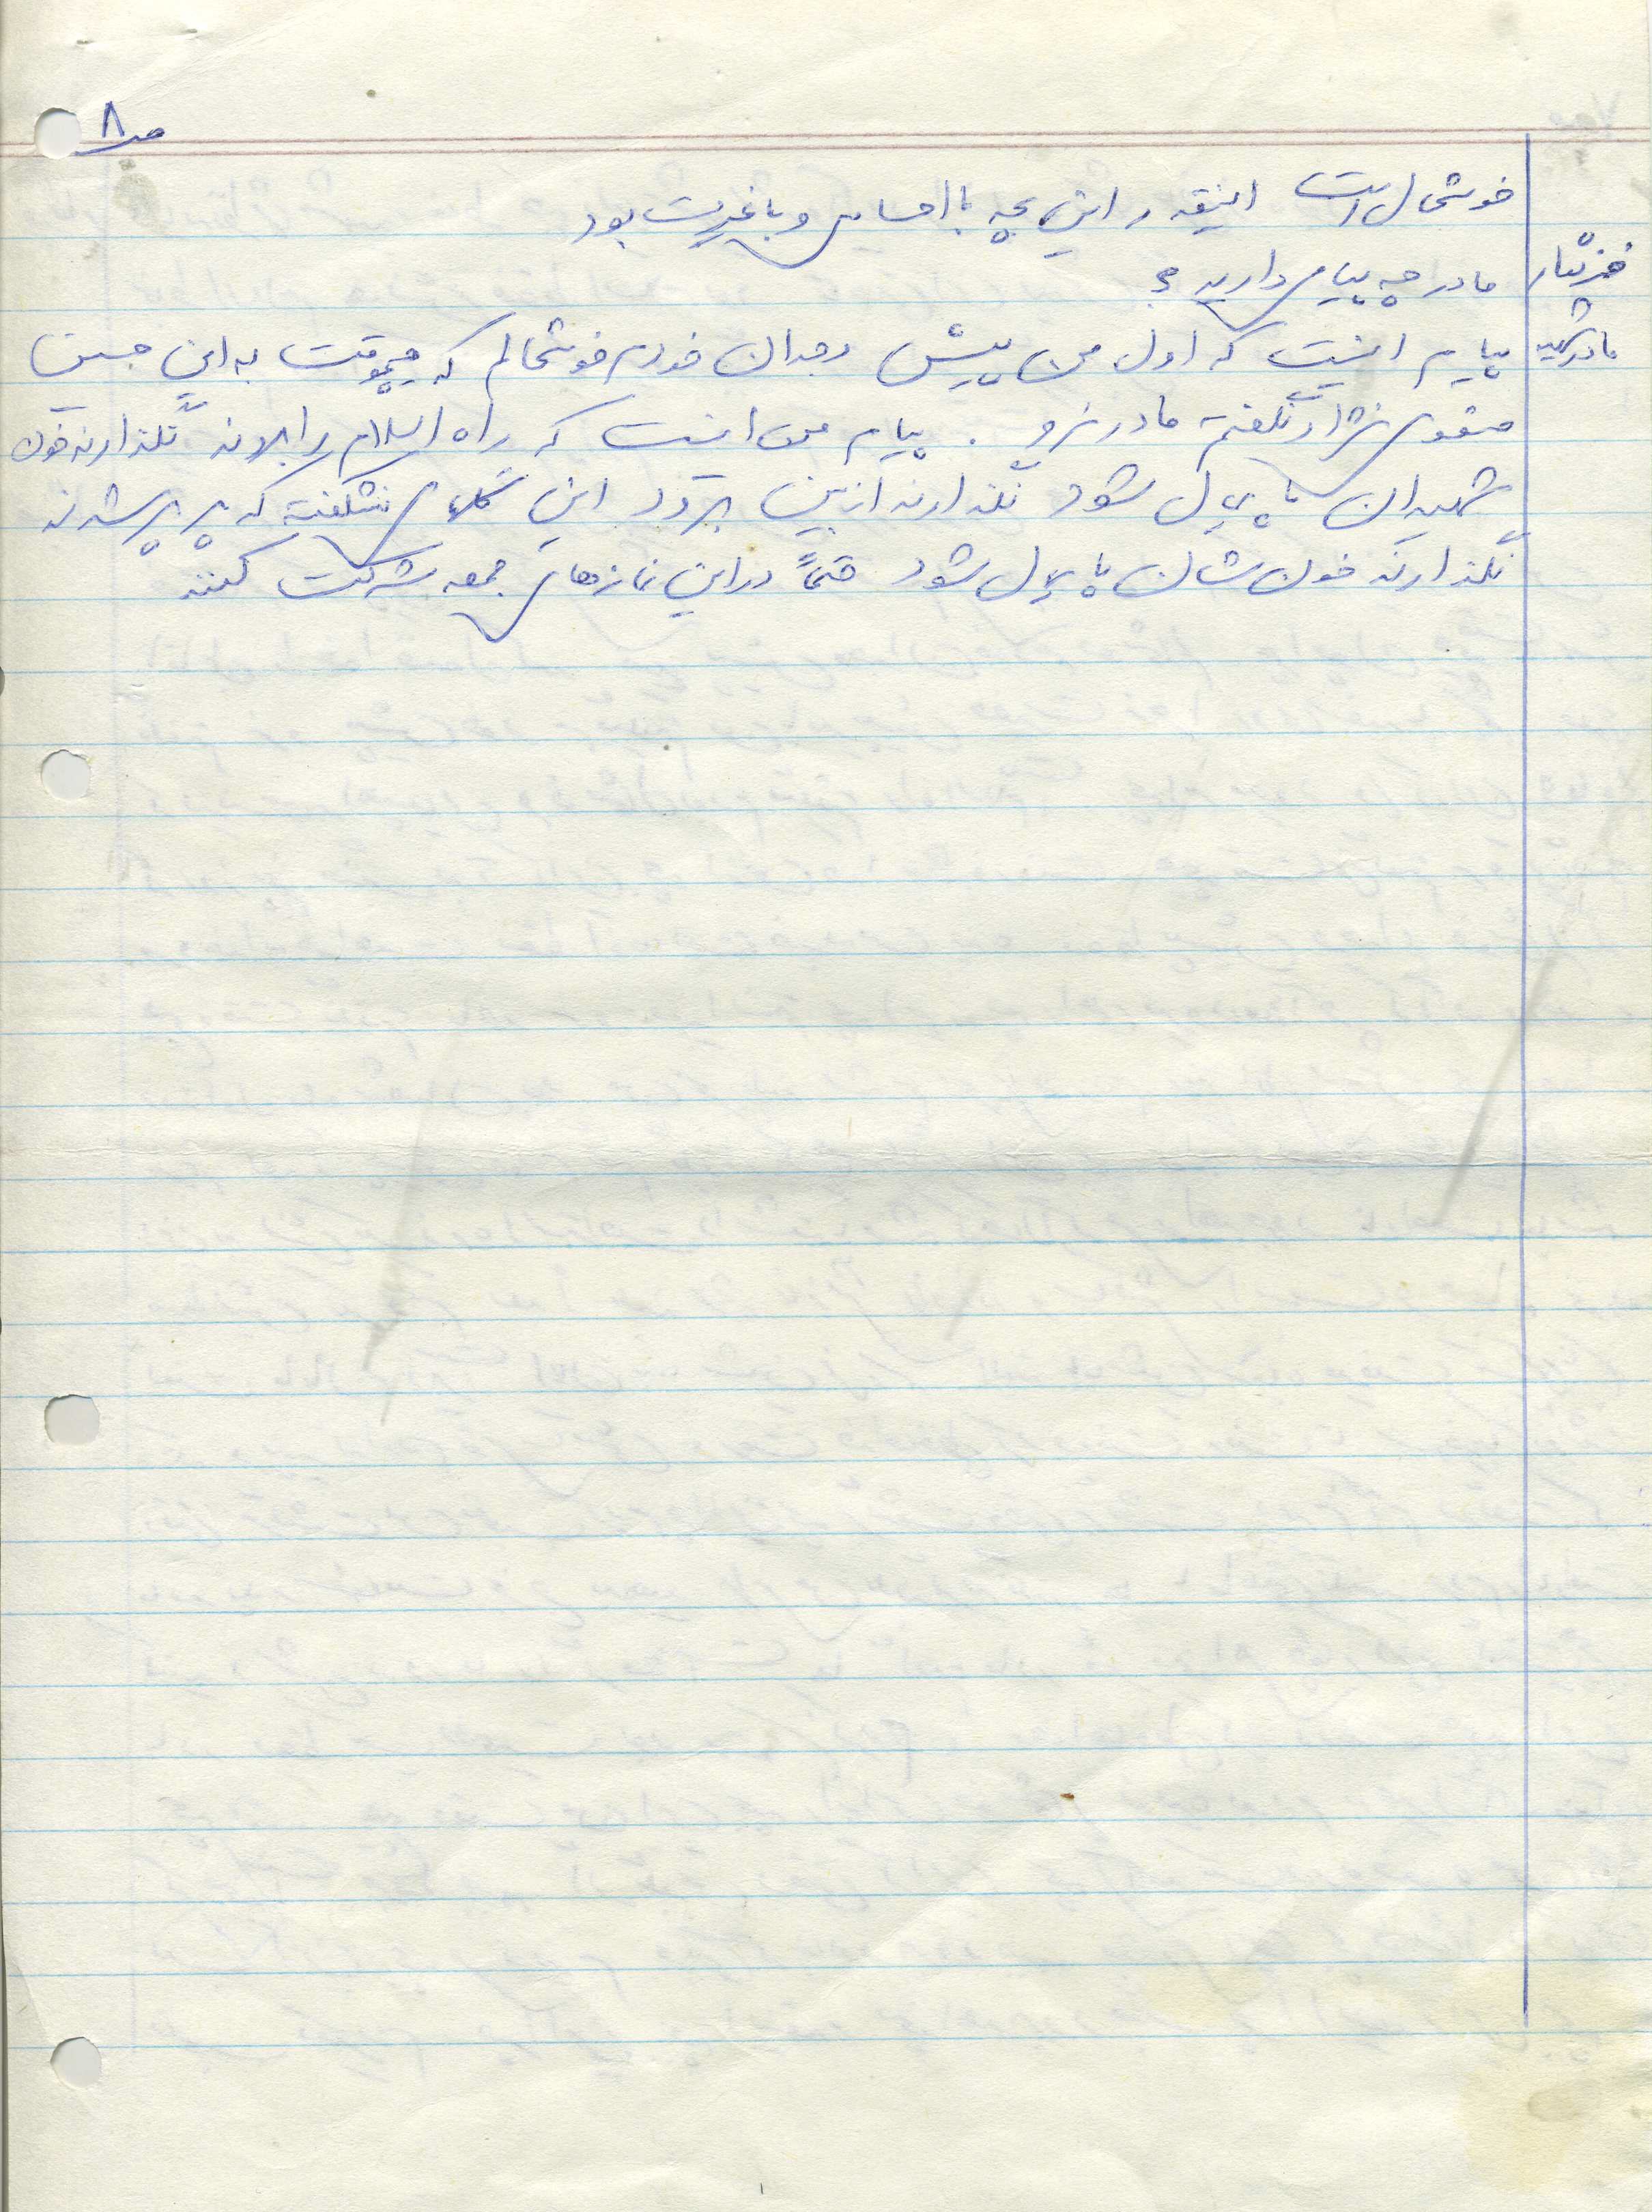 ص ۸
خوشحال است اینقدر این بچه با احساس و با غیرت بود
خبرنگار مادر چه پیامی دارید؟
مادر شهید پیام اینست که اول من پیش وجدان خودم خوشحالم که هیچوقت به این حسین
نگفتم مادر نرو . پیام من اینست که راه اسلام را بروند نگذارند خون
شهیدان پایمال شود نگذارند از بین برود این گلهای نشکفته که پرپر شدند
نگذارند خون شان پایمال شود حتماً در این نمازهای جمعه شرکت کنند